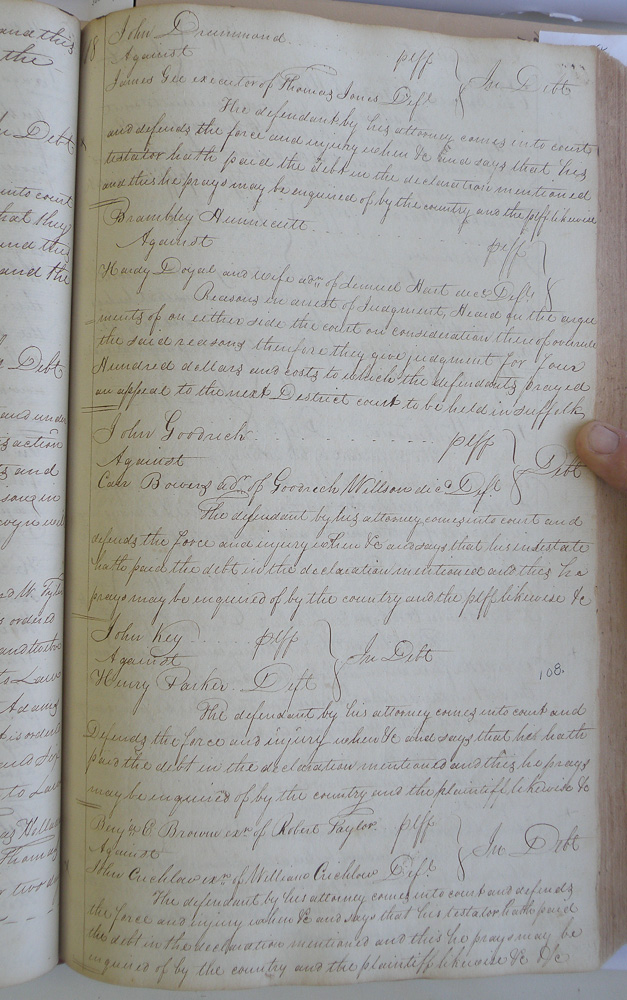 and this
the
In Debt
into court
that they
and the
and the
Debt
and under
is action
and
song in
W. Tyler
ordered
to Law
Adams
disordered
to Law
Thomas
or two
18 John Drummond
Against plff In Debt
James Gee executor of Thomas Jones Deft
The defendant by his attorney comes into court
and defends the force and injury when &c and says that his
testator hath paid the debt in the declaration mentioned
and this he prays may be enquired of by the country and the plff likewise
Brambley Hunnicutt
Against plff
Hardy Doyal and wife adm of Lemuel Hart decd Defts
Reasons in arrest of Judgment, Heard on the argue
ments of on either side the court on consideration thereof overrule
the said reasons therefore they give judgment for four
Hundred dollars and costs to which the defendants prayed
an appeal to the next District court to be held in Suffolk
John Goodrich plff
Against Debt
Carr Bowers adr of Goodrich Willson decd Deft
The defendant by his attorney comes into court and
defends the force and injury when &c and says that his intestate
hath paid the debt in the declaration mentioned and this he
prays may be enquired of by the country and the plff likewise &c
John Key plff
Against In Debt
Henry Parker Deft
108.
The defendant by his attorney comes into court and
Defends the force and injury when &c and says that he hath
paid the debt in the declaration mentioned and this he prays
may be enquired of by the country and the plaintiff likewise &c
Benja E Brown exr of Robert Taylor plff
Against In Debt
John Crichlow exr of William Crichlow Deft
The defendant by his attorney comes into court and defends
the force and injury when &c and says that his testator hath paid
the debt in the declaration mentioned and this he prays may be
enquired of by the country and the plaintiff likewise &c &c